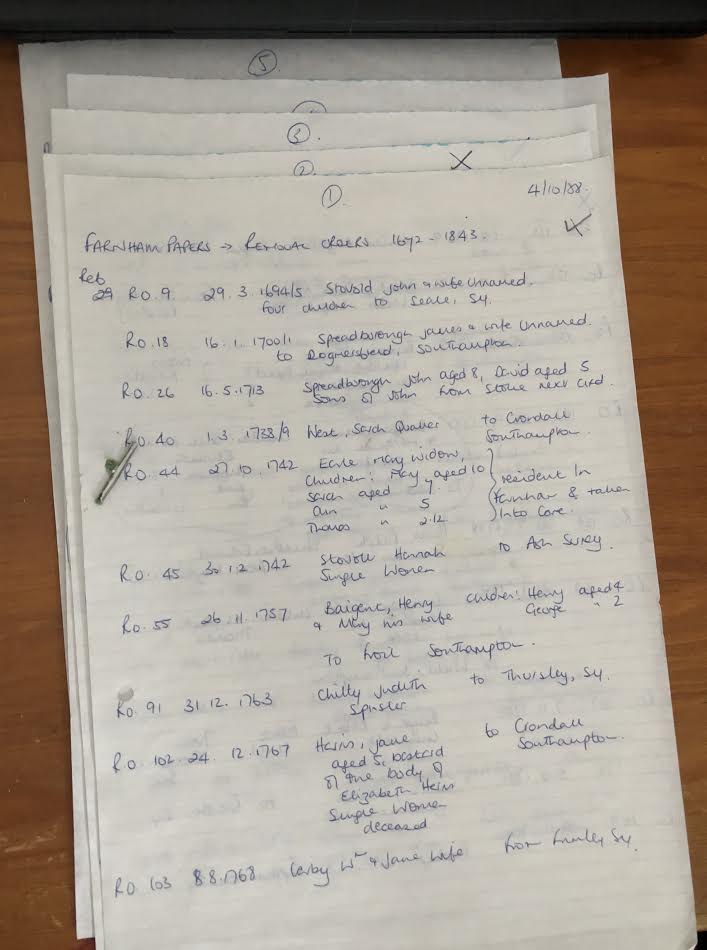 5
3.
2.
X
1.
4/10/88.
FARNHAM PAPERS → REMOVAL ORDERS 1672 - 1843.
Reb
29 RO. 9 29. 3. 1694/5 Stovold John & wife unnamed.
four children to Seale, Sy.
RO. 18 16. 1. 1700/1 Spreadborough James & wife unnamed.
to Dogmersfield, Southampton.
RO. 26 16. 5. 1713 Spreadborough John aged 8, David aged 5
Sons of John from Stoke next Gild.
RO. 40 1. 3. 1738/9 West, Sarah Quaker to Crondall
Southampton.
RO. 44 27. 10. 1742 Earle Mary widow,
Children: Mary aged 10
Sarah aged 7
Ann " 5
Thomas " 2.12
resident in
Farnham & taken
into Care.
RO. 45 30. 12. 1742 Hannah to Ash Surrey.
Single Women
RO. 55 26. 11. 1757 Baigent, Henry children: Henry aged 4
& Mary his wife George " 2
To Southampton.
RO. 91 31. 12. 1763 Chitty Judith to Thursley, Sy.
Spinster
RO. 102. 24. 12. 1767 Jane to Crondall
aged 5, bastard Southampton.
of the body of
Elizabeth
Single Women
deceased
RO 103 8.8.1768 Wm & Jane wife from Frimley Sy.